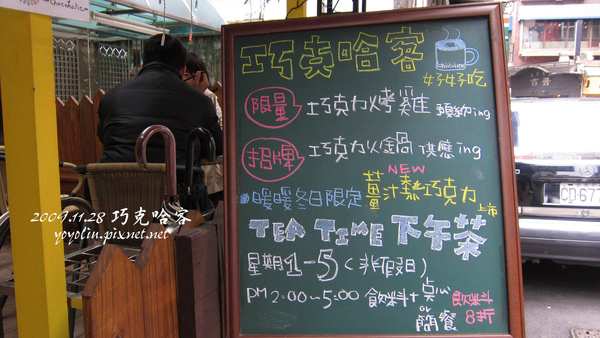 Chocoholic
巧克哈客
chocolate
好好吃
限量 巧克力烤雞 預約ing
招牌 巧克力火鍋 供應ing
NEW
暖暖冬日限定 薑汁柰巧克力 上市
TEA TIME 下午茶
星期1-5(非假日)
PM 2:00~5:00 飲料+點心 or 簡餐 飲料8折
2009.11.28 巧克哈客
yoyolin.pixnet.net
CD677